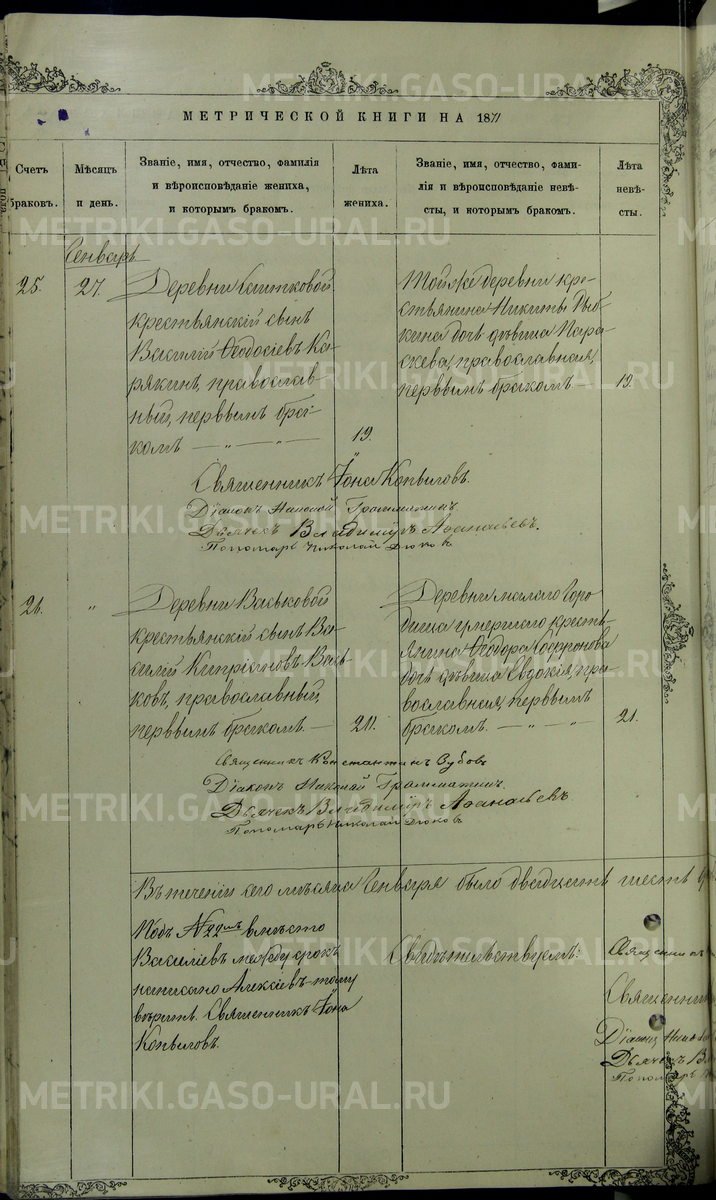 МЕТРИЧЕСКОЙ КНИГИ НА 1871
Счетъ браковъ.
Мѣсяцъ и день.
Званіе, имя, отчество, фамилія
и вѣроисповѣданіе жениха,
и которымъ бракомъ.
Лѣта
жениха.
Званіе, имя, отчество, фами-
лія и вѣроисповѣданіе невѣ-
сты, и которымъ бракомъ.
Лѣта
невѣ-
сты.
Генварь
25.
27.
Деревни
крестьянскій сынъ
Василій Ѳеодосіевъ Ка-
рякинъ, православ-
ный, первымъ бра-
комъ — „ — „ —
19.
Той же деревни кре-
стьянина Никиты
дочь дѣвица Пара-
скева, православная,
первымъ бракомъ —
19
Священникъ Іона Копыловъ.
Діаконъ Николай Грамматинъ
Дьячекъ Владиміръ Аѳанасьевъ.
Пономарь Николай Дюковъ
26.
„
Деревни Васьковой
крестьянскій сынъ Ва-
силій Кипріановъ Вась-
ковъ, православный,
первымъ бракомъ. —
20.
Деревни малаго Горо-
дища умершаго кресть-
янина Ѳеодора Софронова
дочь дѣвица Евдокія, пра-
вославная, первымъ
бракомъ. — „ — „ —
21.
Священникъ Константинъ Зубовъ
Діаконъ Николай Грамматинъ.
Дьячекъ Владиміръ Аѳанасьевъ
Пономарь Николай Дюковъ
Въ теченіи сего мѣсяца Генваря было двадцать шесть
Подъ № 22мъ вмѣсто
Василіевъ между срокъ
написано Алексіевъ тому
вѣрить. Священникъ Іона
Копыловъ.
Свидѣтельствуемъ:
Священникъ
Священникъ
Діаконъ
Дьячекъ В
Пономарь
METRIKI.GASO-URAL.RU
METRIKI.GASO-URAL.RU
METRIKI.GASO-URAL.RU
METRIKI.GASO-URAL.RU
METRIKI.GASO-URAL.RU
METRIKI.GASO-URAL.RU
METRIKI.GASO-URAL.RU
METRIKI.GASO-URAL.RU